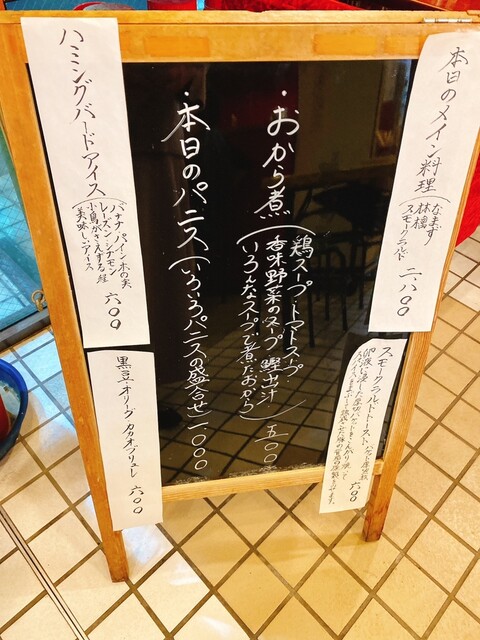 本日のメイン料理
なまず
林檎
スモークラルド
二八〇〇
スモークラルドトースト
六〇〇
・おから煮
鶏スープ・トマトスープ・
香味野菜のスープ 鰹出汁
いろんなスープで煮たおから
五〇〇
・本日のパニス(いろいろパニスの盛合せ)一〇〇〇
ハミングバードアイス
バナナ パイン 木の実
レーズン シナモン
小鳥がさえずる程
美味しいアイス
六〇〇
黒豆・オリーブ カカオブリュレ
六〇〇